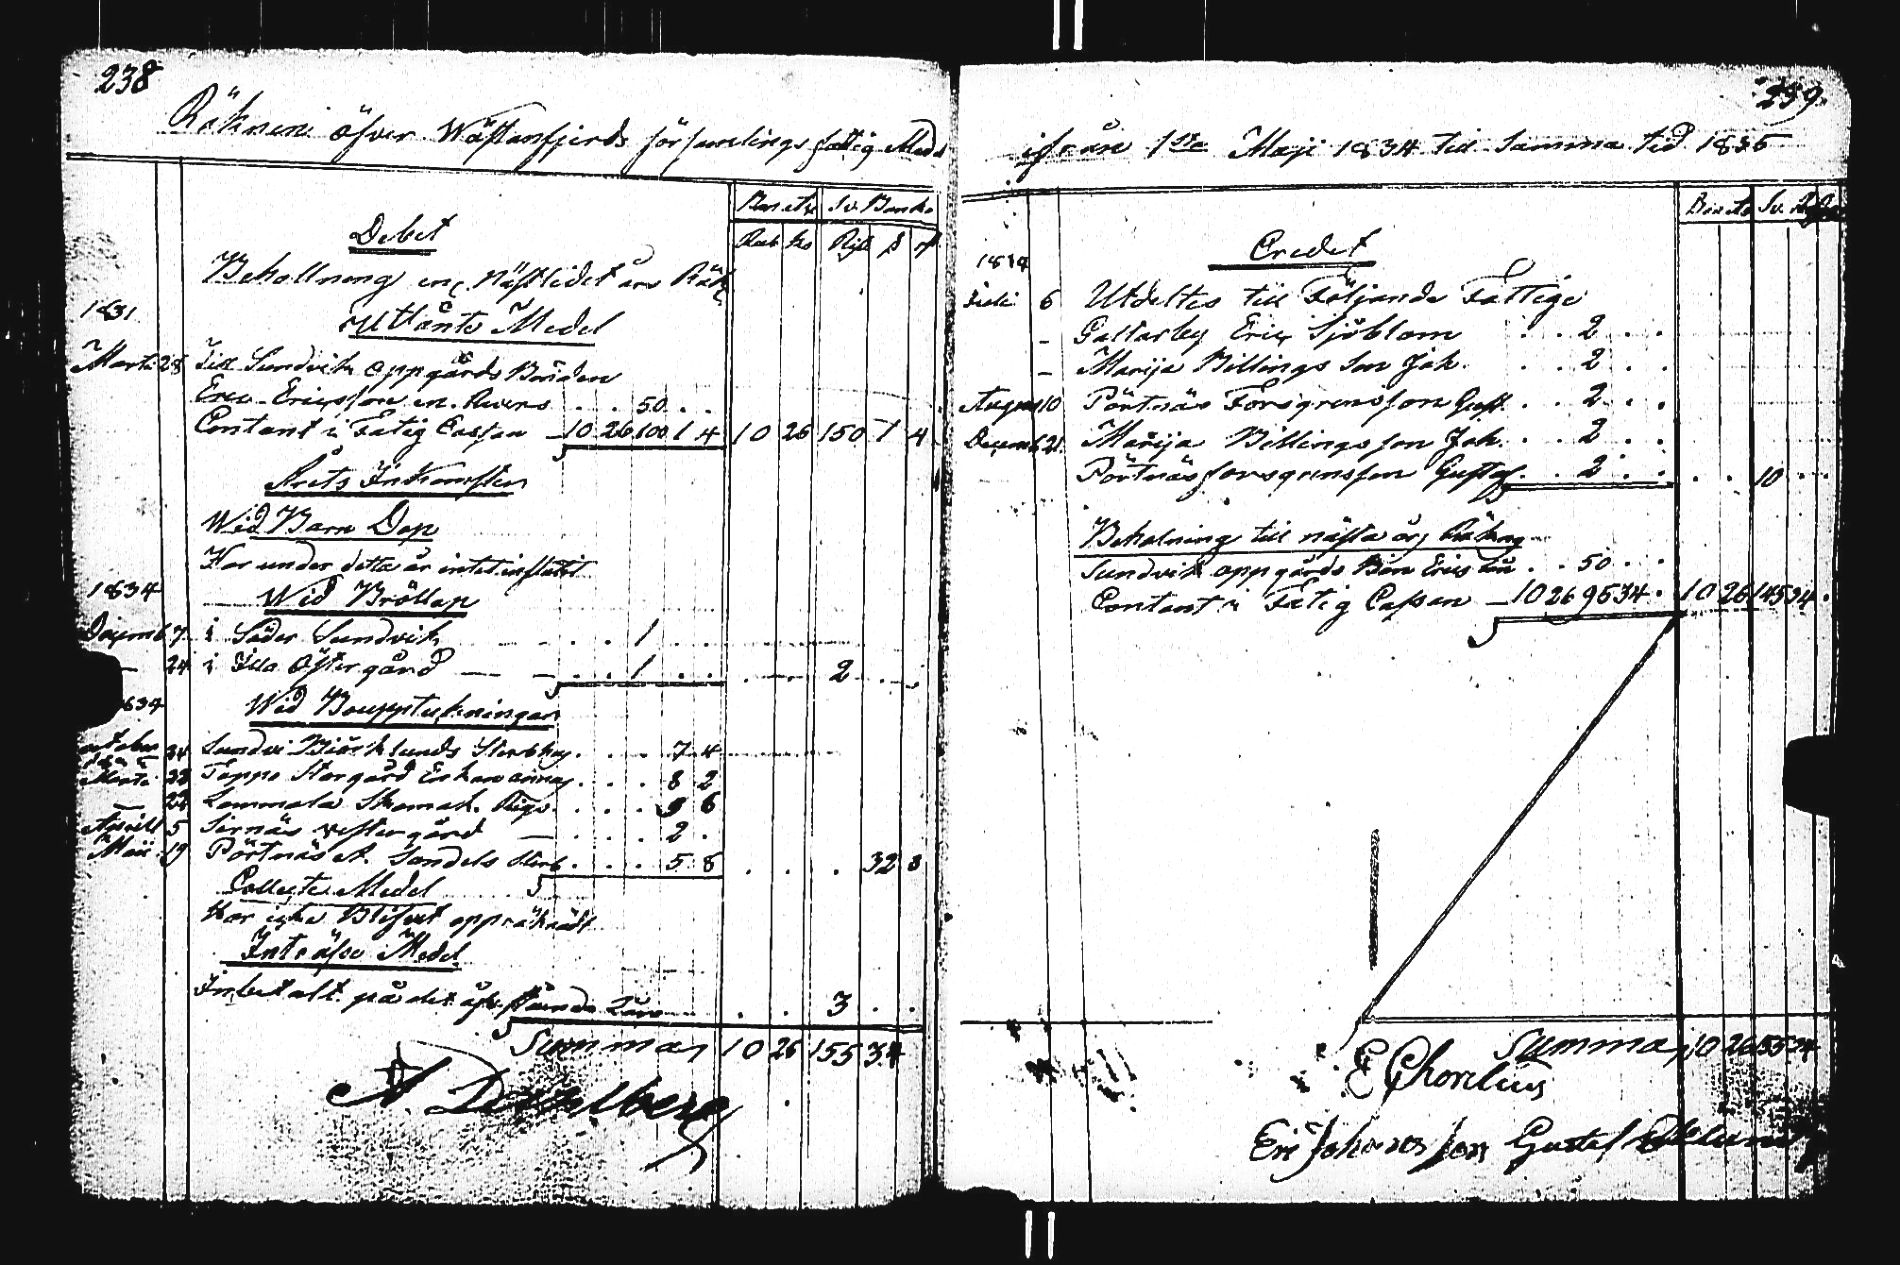 238
Räkneni öfver Wästanfjerds församlings fattig Medel
Banco Sv. Banko
Debet
Rub ko Rdr ß rf
Behollning enl Nästledet års Räk
1831
Utlånte Medel
Martii 28 Till Sundvik oppgårds Bonden
Eric Ericsson en. Revers . . 50 . .
Contant i Fatig Cassan 10 26 100 1 4 10 26 150 1 4
Årets Inkomster
Wid Barn Dop
Har under detta år intet influtit
1834
Wid Bröllop
Decemb 7 i Söder Sundvik . . 1 . .
— 24 i Illo Östergård — . . 1 . . . . 2 . .
1834
Wid Bouppteckningar
October 24 Sundvi Biörklunds Sterbhus . . . 7 4
Martii 22 Tappo Storgård . . . 8 2
— 22 Lammala . . . 9 6
Aprill 5 Sirnäs vestergård — . . . 2 .
Maii 19 Pörtnäs A. Sandels Sterb . . . 5 8 . . . 32 8
Collecte Medel
Har icke Blifvet oppräknadt
Intresse Medel
Inbetalt på det Lån . . 3 . .
Summa 10 26 155 34

239
ifrån 1sta Maji 1834 till Samma tid 1835
Banco Sv. Rg
Credet
1834
Juli 6 Utdeltes till Följande Fattige
– Galtarby Eric Sjöblom . . 2 . .
– Marija Billings Son Joh. . . 2 . .
August 10 Pörtnäs Forsgrensson Gust. . . 2 . .
Decemb 21 Marija Billingsson Joh. . . 2 . .
Pörtnäs Forsgrensson Gustaf . . 2 . . . . 10 . .
Beholning till nästa års Räkning
Sundvik oppgårds Bon Ericsson . . 50 . .
Contant i Fatig Cassan — 10 26 95 34 . 10 26 145 34 .
Summa 10 26 155 34
E Chorelius
Eric Johansson Gustaf